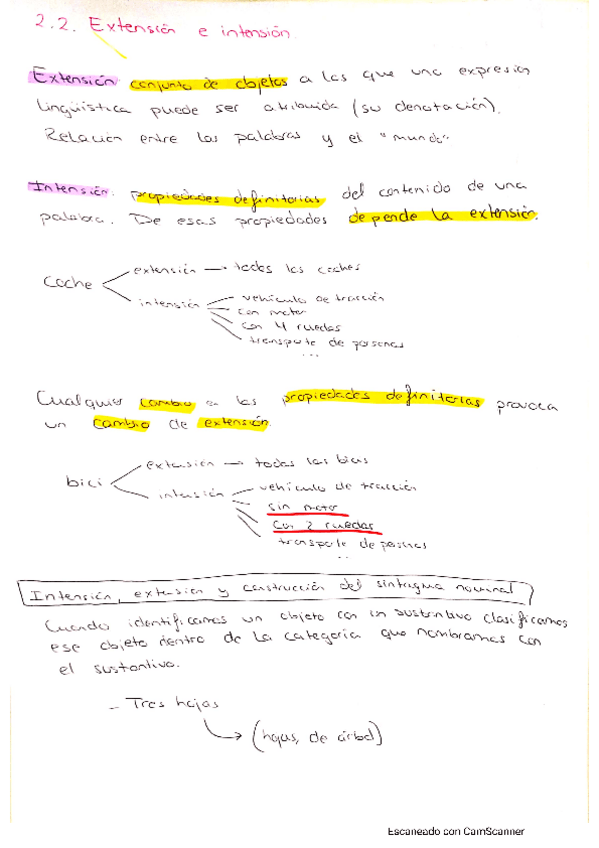 2.2. Extensión e intensión
Extensión conjunto de objetos a los que una expresión
lingüística puede ser atribuida (su denotación).
Relación entre las palabras y el "mundo"
Intensión: propiedades definitorias del contenido de una
palabra. De esas propiedades depende la extensión.
coche
extensión → todos los coches
intensión
vehículo de tracción
con motor
con 4 ruedas
transporte de personas
...
Cualquier cambio en las propiedades definitorias provoca
un cambio de extensión.
bici
extensión → todas las bicis
intensión
vehículo de tracción
sin motor
con 2 ruedas
transporte de personas
...
Intensión, extensión y construcción del sintagma nominal
Cuando identificamos un objeto con un sustantivo clasificamos
ese objeto dentro de la categoría que nombramos con
el sustantivo.
- Tres hojas
→ (hojas, de árbol)
Escaneado con CamScanner